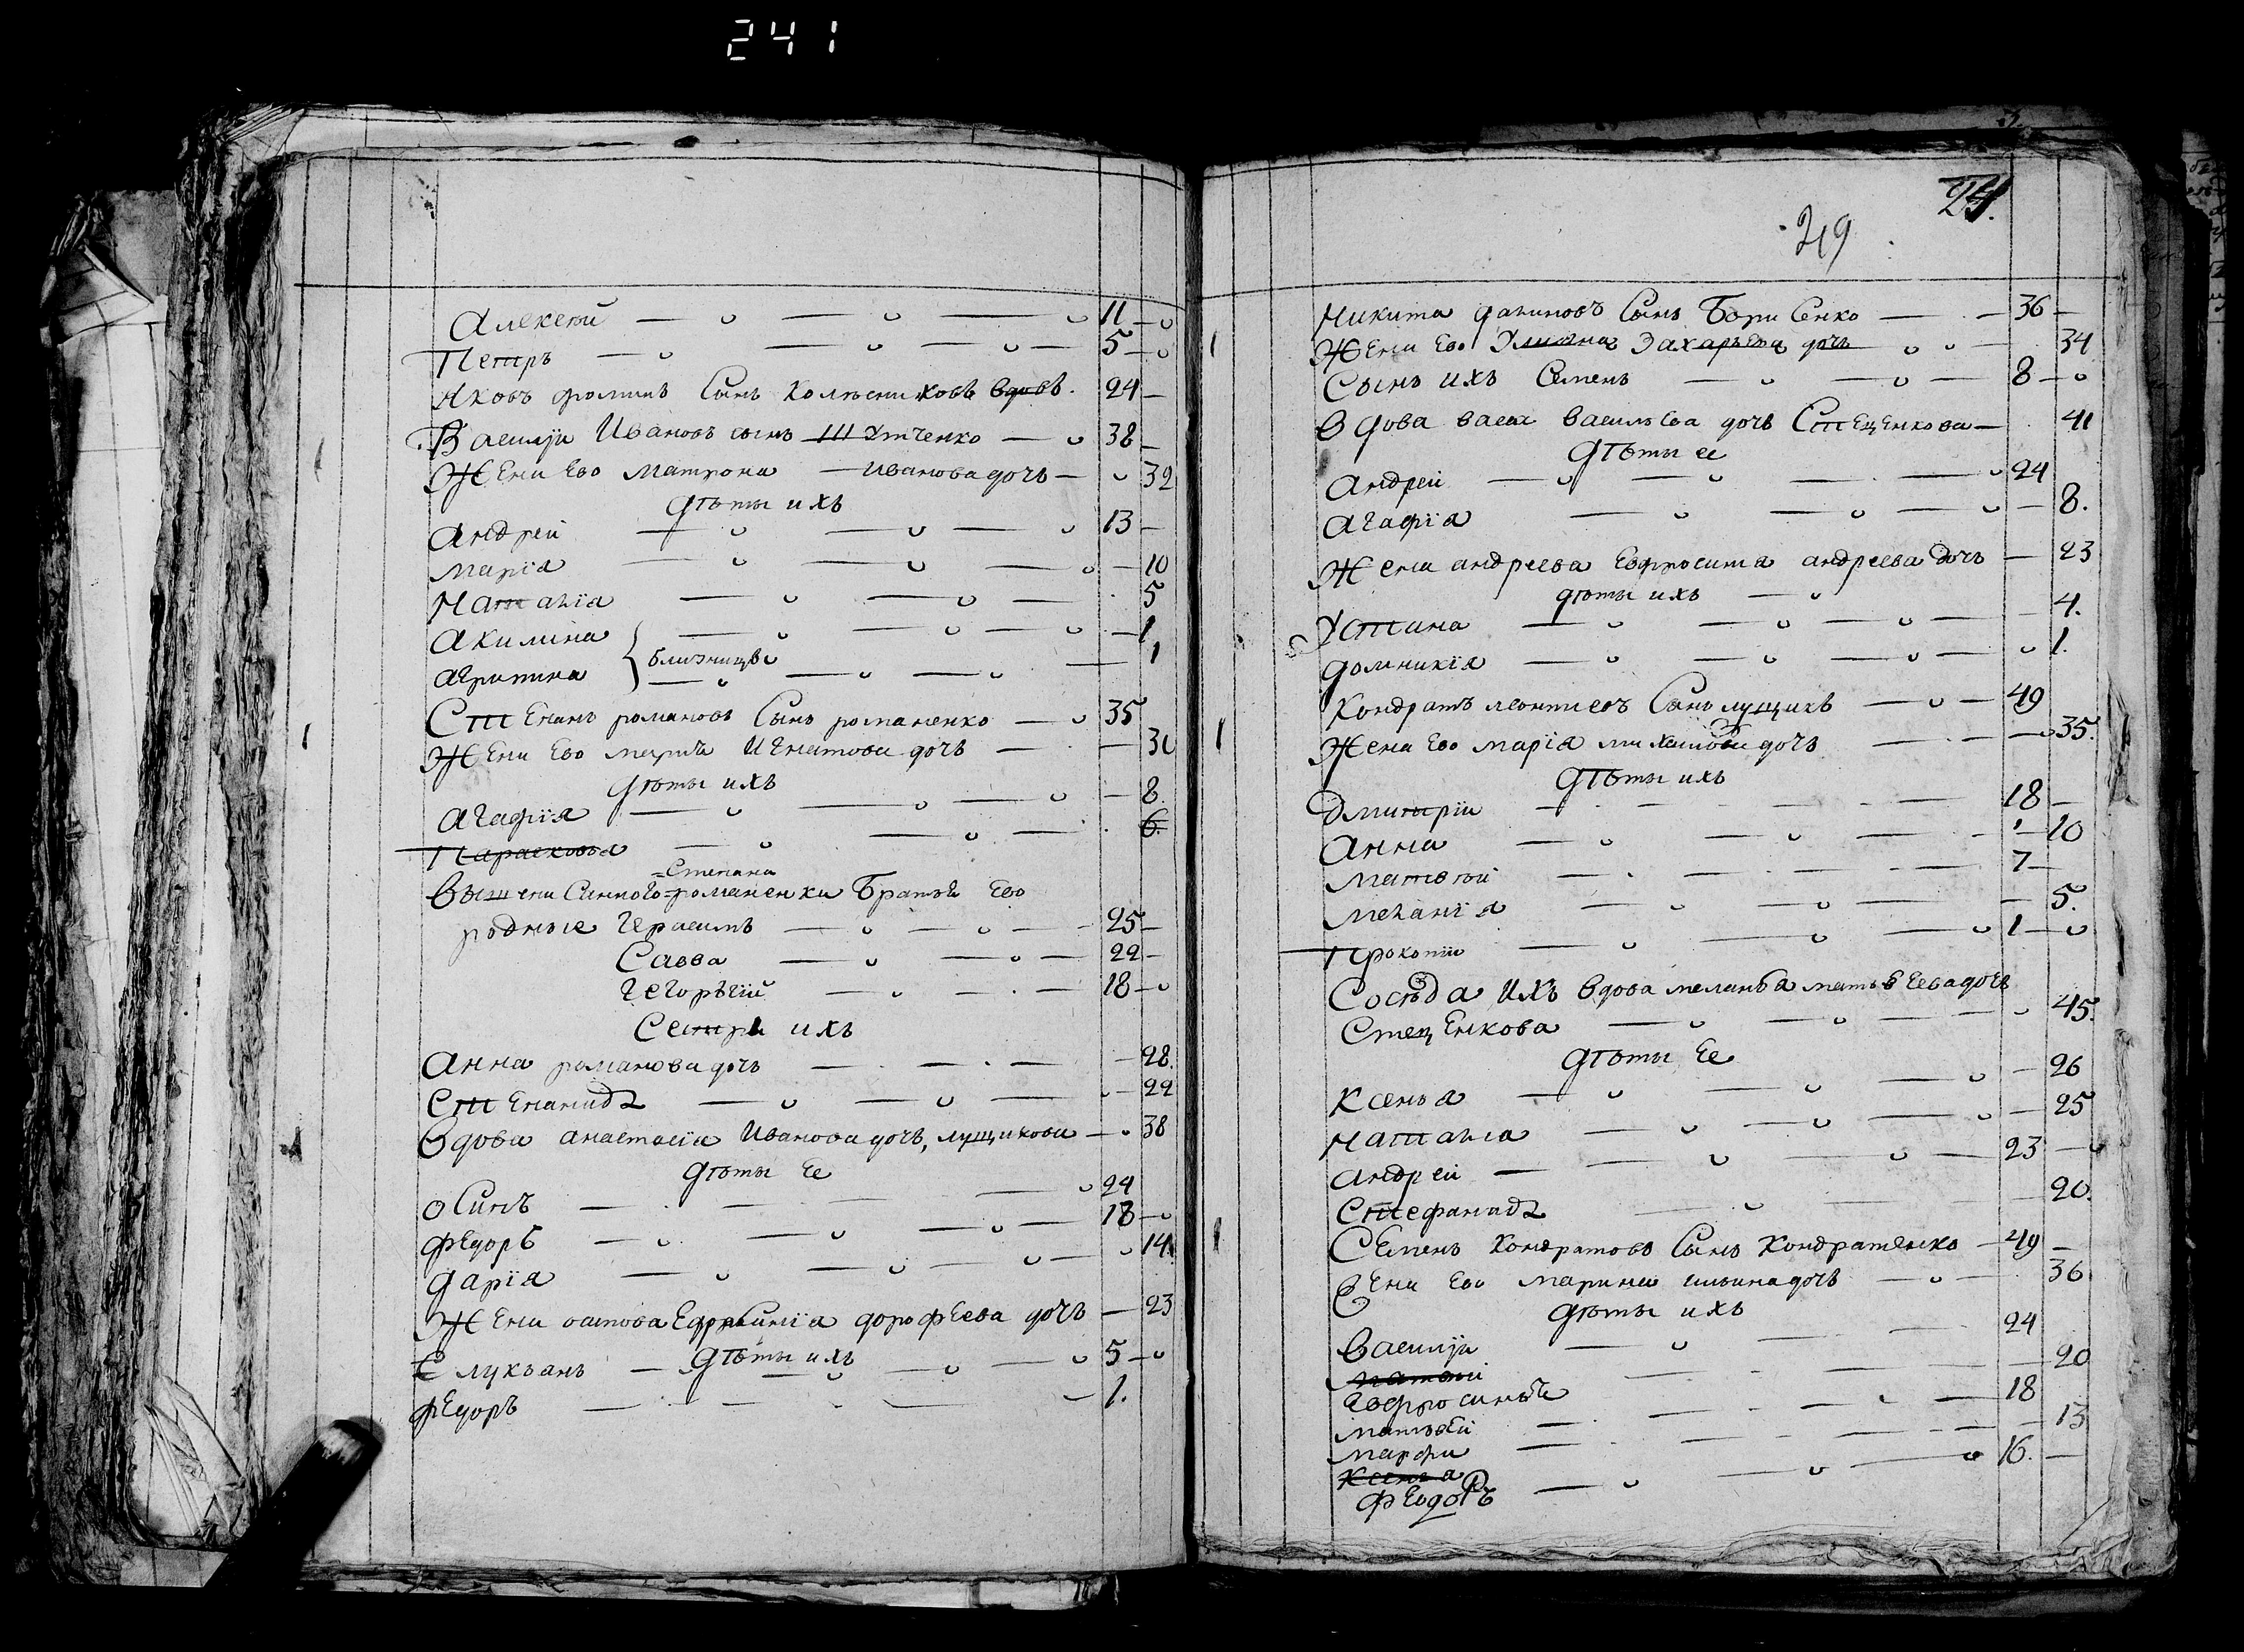 241
Алексей 11
Петръ 5
Яковъ фоминъ Сынъ Колесниковъ вдовъ. 24
Василји Ивановъ сынъ Шутченко 38
Жена Ево Матрона Иванова дочь 32
дѣты ихъ
андрей 13
марїа 10
Наталїа 5
акилина 1
близницы
агрипина 1
Стѣпанъ романовъ Сынъ романенко 35
Жена Ево Игнатова дочь
дѣты ихъ
агафїя 8.
Парасковѣа 6.
Степана
Вышеписанного романенка Братья Ево
родные герасимъ 25
Савва 22
Гегоргїй 18
Сестры ихъ
анна романова дочь 28.
Стѣпанида 22
Вдова анастасїа Иванова дочь, лущикова 38
дѣты Ее
осипъ 24
федоръ 18
дарїя 14.
Жена осипова Ефросинїа дорофеева дочь 23
дѣты ихъ
лукъанъ 5
федоръ 1.
24.
249
Никита даниловъ Сынъ Борисенко 36
Жена Ево Улияна Захарьева дочь 34
Сынъ ихъ Семенъ 8
Вдова васильева дочь Стеценкова 41
дѣты ее
андрей 24
агафїа 8.
Жена андреева Ефросина андреева дочь 23
дѣты ихъ
Устина 4.
домникїя 1.
Кондратъ леонтиевъ Сынъ лущикъ 49
Жена Ево марїа михайлова дочь 35.
дѣты ихъ
Дмитрїи 18
анна 10
матвѣй 7
меланїя 5.
Прокопїи 1
Сосѣда Ихъ вдова меланьа матвѣева дочь
Стеценкова 45.
дѣты Ее
Ксенъа 26
Наталїа 25
андрей 23
Стефанида 20.
Семенъ Кондратовъ Сынъ Кондратенко 49
Жена Ево марина ильина дочь 36
дѣты ихъ
Василји 24
матвѣй
Евфросинья 20
матвѣй 18
марфа 13
Ксенъа
феодоръ 16.